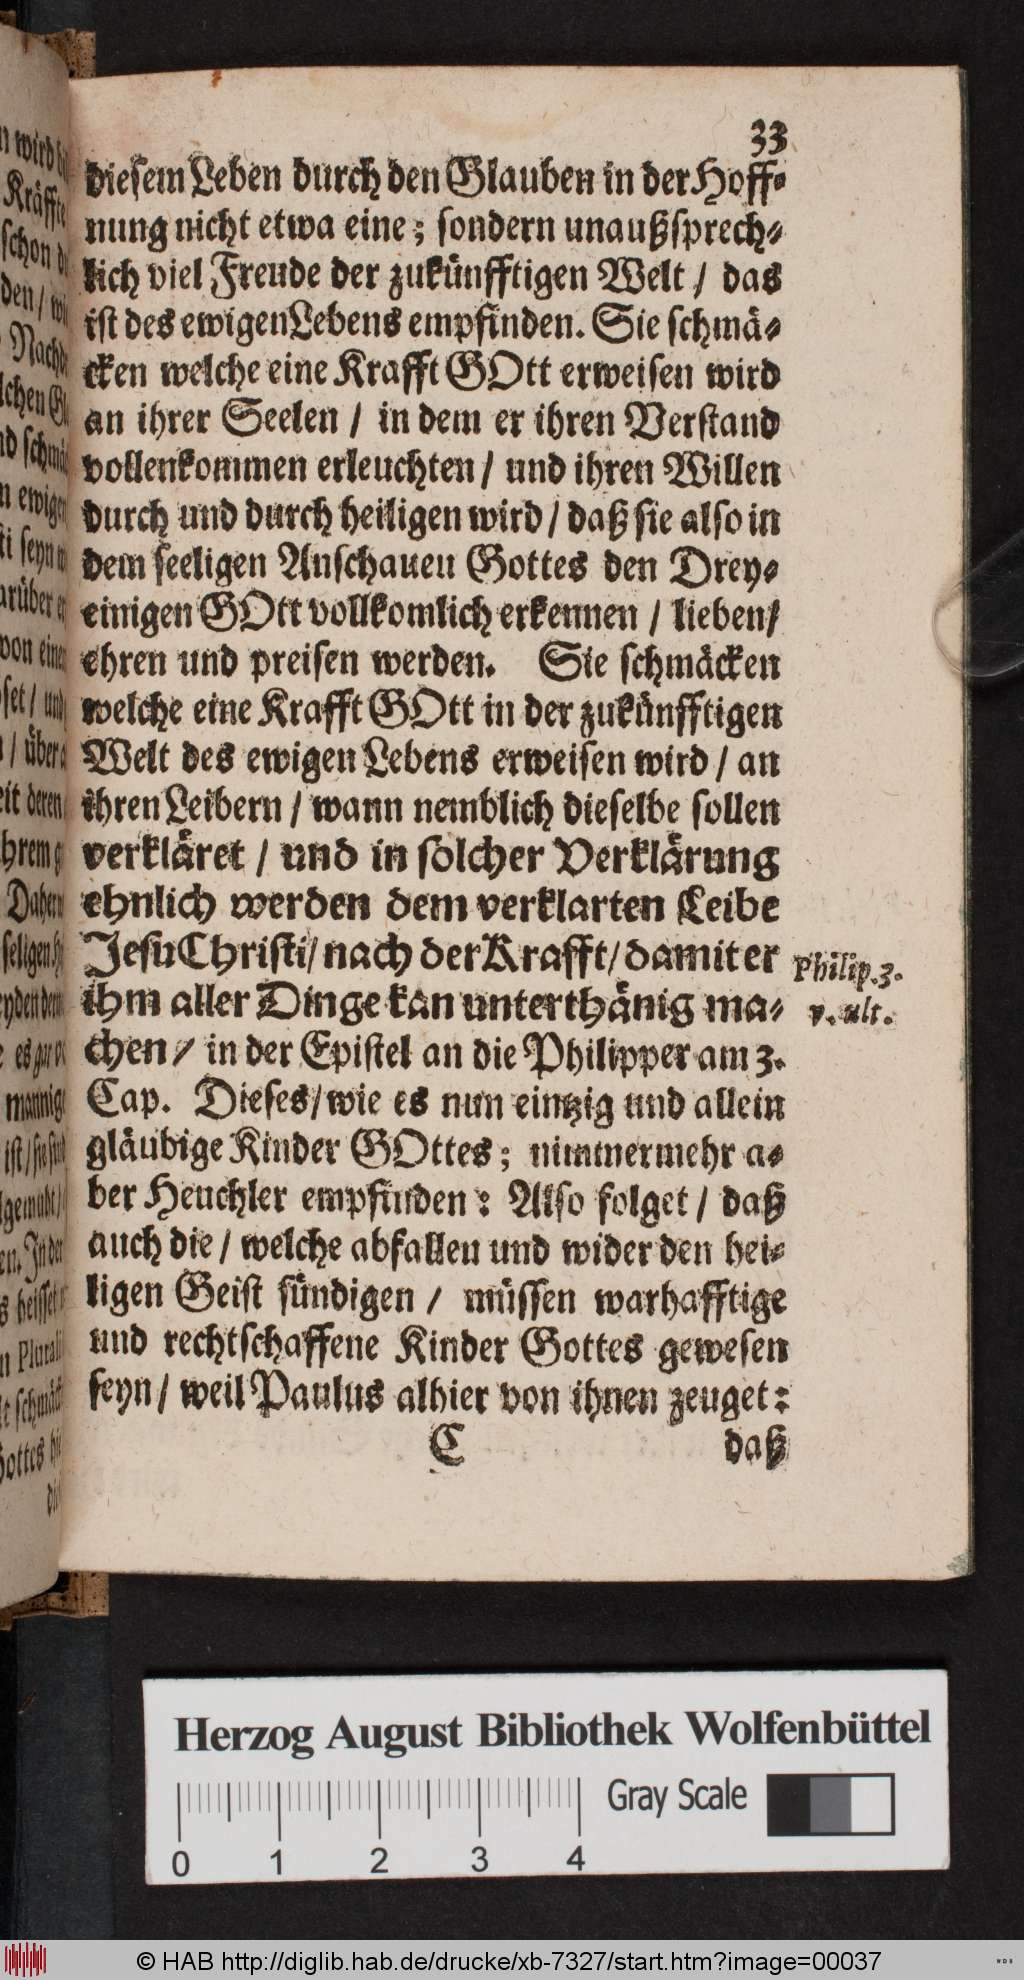 33
diesem Leben durch den Glauben in der Hoff-
nung nicht etwa eine; sondern unaußsprech-
lich viel Freude der zukünfftigen Welt / das
ist des ewigen Lebens empfinden. Sie schmä-
cken welche eine Krafft GOtt erweisen wird
an ihrer Seelen / in dem er ihren Verstand
vollenkommen erleuchten / und ihren Willen
durch und durch heiligen wird / daß sie also in
dem seeligen Anschauen Gottes den Drey-
einigen GOtt vollkomlich erkennen / lieben/
ehren und preisen werden. Sie schmäcken
welche eine Krafft GOtt in der zukünfftigen
Welt des ewigen Lebens erweisen wird / an
ihren Leibern / wann nemblich dieselbe sollen
verkläret / und in solcher Verklärung
ehnlich werden dem verklarten Leibe
Jesu Christi/ nach der Krafft/ damit er
ihm aller Dinge kan unterthänig ma-
chen / in der Epistel an die Philipper am 3.
Cap. Dieses/ wie es nun eintzig und allein
gläubige Kinder GOttes; nimmermehr a-
ber Heuchler empfinden: Also folget / daß
auch die / welche abfallen und wider den hei-
ligen Geist sündigen / müssen warhafftige
und rechtschaffene Kinder Gottes gewesen
seyn / weil Paulus alhier von ihnen zeuget:
C daß
Philip. 3.
v. ult.
n wird
Kräffte
schon
den / wi
Nachd
lchen
nd schmä
n ewige
ti seyn
arüber
von eine
set / und
/ über
eit deren
hrem
Daher
seligen
eyden dem
es
mannig
ist / sie sind
en. In der
s heisset
n Plurali
lt schmäck
Gottes
Herzog August Bibliothek Wolfenbüttel
Gray Scale
0 1 2 3 4
© HAB http://diglib.hab.de/drucke/xb-7327/start.htm?image=00037